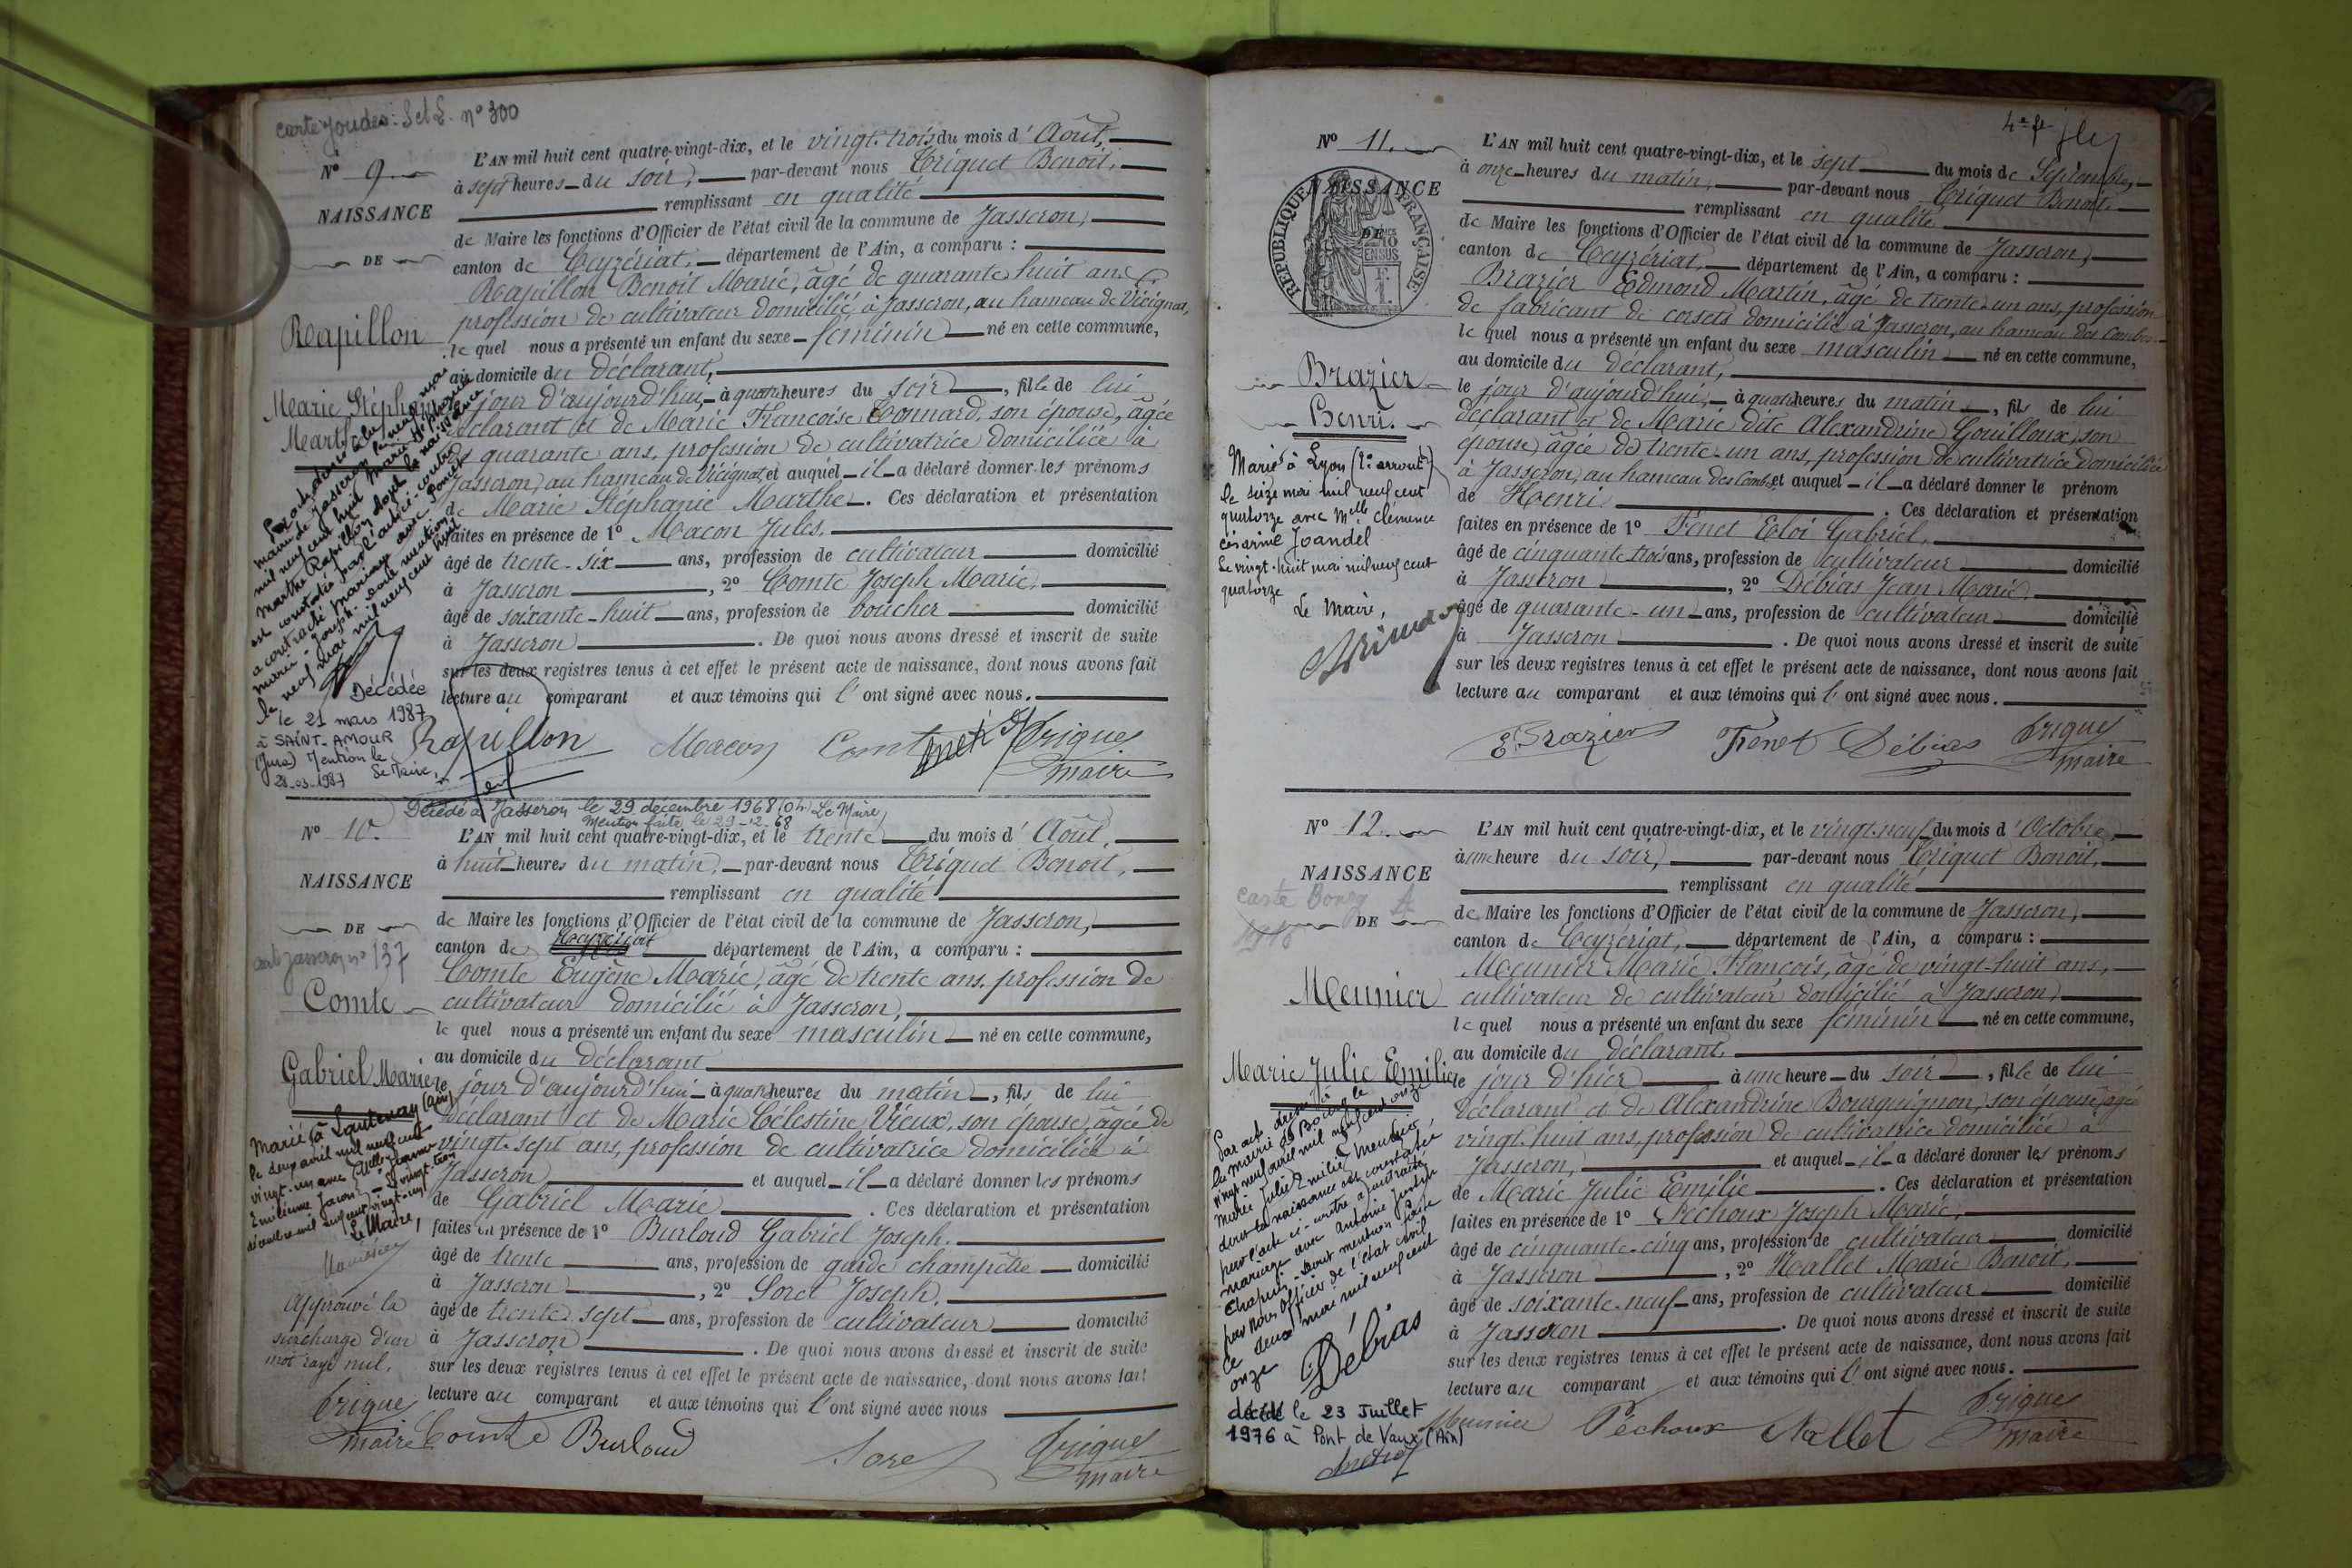 carte Joudes: S et L. n° 300
N° 9.
NAISSANCE
DE
Rapillon
Marie Stéphanie
Marthe
L'AN mil huit cent quatre-vingt-dix, et le vingt-trois du mois d'Août,
à sept heures du soir, par-devant nous Triquet Benoit,
remplissant en qualité
de Maire les fonctions d'Officier de l'état civil de la commune de Jasseron,
canton de Ceyzériat, département de l'Ain, a comparu :
Rapillon Benoit Marie, âgé de quarante huit ans,
profession de cultivateur domicilié à Jasseron, au hameau de Vicignat,
le quel nous a présenté un enfant du sexe féminin né en cette commune,
au domicile du déclarant,
le jour d'aujourd'hui, à quatre heures du soir, fille de lui
déclarant et de Marie Françoise Connard, son épouse, âgée
de quarante ans, profession de cultivatrice domiciliée à
Jasseron, au hameau de Vicignat, et auquel il a déclaré donner les prénoms
de Marie Stéphanie Marthe. Ces déclaration et présentation
faites en présence de 1° Macon Jules,
âgé de trente-six ans, profession de cultivateur domicilié
à Jasseron, 2° Comte Joseph Marie,
âgé de soixante-huit ans, profession de boucher domicilié
à Jasseron. De quoi nous avons dressé et inscrit de suite
sur les deux registres tenus à cet effet le présent acte de naissance, dont nous avons fait
lecture au comparant et aux témoins qui l'ont signé avec nous.
Par acte dressé à la
mairie de Jasseron le neuf mai
mil neuf cent huit Marie Stéphanie
Marthe Rapillon dont la naissance
est constatée par l'acte ci-contre
a contracté mariage avec
Marie-Joseph. dont mention
le neuf mai mil neuf cent huit
Décédée
le 21 mars 1987
à SAINT-AMOUR
(Jura) Mention le
28-03-1987 Le Maire,
Rapillon Macon Comte Triquet
maire
Décédé à Jasseron le 29 décembre 1968 (0h) Le Maire,
Mention faite le 29-12-68
N° 10.
NAISSANCE
DE
carte Jasseron n° 137
Comte
Gabriel Marie
L'AN mil huit cent quatre-vingt-dix, et le trente du mois d'Août,
à huit heures du matin, par-devant nous Triquet Benoit,
remplissant en qualité
de Maire les fonctions d'Officier de l'état civil de la commune de Jasseron,
canton de Ceyzériat département de l'Ain, a comparu :
Comte Eugène Marie, âgé de trente ans, profession de
cultivateur domicilié à Jasseron,
le quel nous a présenté un enfant du sexe masculin né en cette commune,
au domicile du déclarant
le jour d'aujourd'hui à quatre heures du matin, fils de lui
déclarant et de Marie Célestine Vieux, son épouse, âgée de
vingt-sept ans, profession de cultivatrice domiciliée à
Jasseron et auquel il a déclaré donner les prénoms
de Gabriel Marie. Ces déclaration et présentation
faites en présence de 1° Burloud Gabriel Joseph.
âgé de trente ans, profession de garde champêtre domicilié
à Jasseron, 2° Soret Joseph,
âgé de trente sept ans, profession de cultivateur domicilié
à Jasseron. De quoi nous avons dressé et inscrit de suite
sur les deux registres tenus à cet effet le présent acte de naissance, dont nous avons fait
lecture au comparant et aux témoins qui l'ont signé avec nous
Marié à Lantenay (Ain)
le deux avril mil neuf cent
vingt-un avec Melle Jeanne
Emilienne Jacon
Le Maire,
Approuvé la
surcharge d'un
mot rayé nul.
Triquet
maire
Comte Burloud Soret Triquet
maire
4e ft
N° 11.
NAISSANCE
DE
RÉPUBLIQUE FRANÇAISE
Brazier
Henri.
L'AN mil huit cent quatre-vingt-dix, et le sept du mois de Septembre,
à onze heures du matin, par-devant nous Triquet Benoit,
remplissant en qualité
de Maire les fonctions d'Officier de l'état civil de la commune de Jasseron,
canton de Ceyzériat, département de l'Ain, a comparu :
Brazier Edmond Martin, âgé de trente-un ans, profession
de fabricant de corsets domicilié à Jasseron, au hameau des Combes
le quel nous a présenté un enfant du sexe masculin né en cette commune,
au domicile du déclarant,
le jour d'aujourd'hui, à quatre heures du matin, fils de lui
déclarant et de Marie dite Alexandrine Gouilloux, son
épouse, âgée de trente-un ans, profession de cultivatrice domiciliée
à Jasseron, au hameau des Combes, et auquel il a déclaré donner le prénom
de Henri. Ces déclaration et présentation
faites en présence de 1° Fenet Eloi Gabriel,
âgé de cinquante trois ans, profession de cultivateur domicilié
à Jasseron, 2° Débias Jean Marie,
âgé de quarante-un ans, profession de cultivateur domicilié
à Jasseron. De quoi nous avons dressé et inscrit de suite
sur les deux registres tenus à cet effet le présent acte de naissance, dont nous avons fait
lecture au comparant et aux témoins qui l'ont signé avec nous.
Marié à Lyon (2e arront)
le seize mai mil neuf cent
quatorze avec Melle Clémence
Césarine Joandel
Le vingt-huit mai mil neuf cent
quatorze
Le Maire,
E. Brazier Fenet Débias Triquet
maire
N° 12.
NAISSANCE
DE
carte Bourg
Meunier
Marie Julie Emilie
L'AN mil huit cent quatre-vingt-dix, et le vingt-neuf du mois d'Octobre
à une heure du soir, par-devant nous Triquet Benoit,
remplissant en qualité
de Maire les fonctions d'Officier de l'état civil de la commune de Jasseron,
canton de Ceyzériat, département de l'Ain, a comparu :
Meunier Marie François, âgé de vingt-huit ans,
cultivateur de cultivateur domicilié à Jasseron,
le quel nous a présenté un enfant du sexe féminin né en cette commune,
au domicile du déclarant,
le jour d'hier à une heure du soir, fille de lui
déclarant et de Alexandrine Bourguignon, son épouse, âgée
vingt-huit ans, profession de cultivatrice domiciliée à
Jasseron, et auquel il a déclaré donner les prénoms
de Marie Julie Emilie. Ces déclaration et présentation
faites en présence de 1° Péchoux Joseph Marie,
âgé de cinquante-cinq ans, profession de cultivateur domicilié
à Jasseron, 2° Nallet Marie Benoit,
âgé de soixante-neuf ans, profession de cultivateur domicilié
à Jasseron. De quoi nous avons dressé et inscrit de suite
sur les deux registres tenus à cet effet le présent acte de naissance, dont nous avons fait
lecture au comparant et aux témoins qui l'ont signé avec nous.
Par acte dressé à
la mairie de Bourg le
vingt neuf avril mil neuf cent onze
Marie Julie Emilie Meunier
dont la naissance est constatée
par l'acte ci-contre a contracté
mariage avec Antoine Joseph
Chapuis. Dont mention faite
par nous Officier de l'état civil
ce deux mai mil neuf cent
onze
Débias
décédé le 23 Juillet
1976 à Pont de Vaux (Ain)
Meunier Péchoux Nallet Triquet
maire